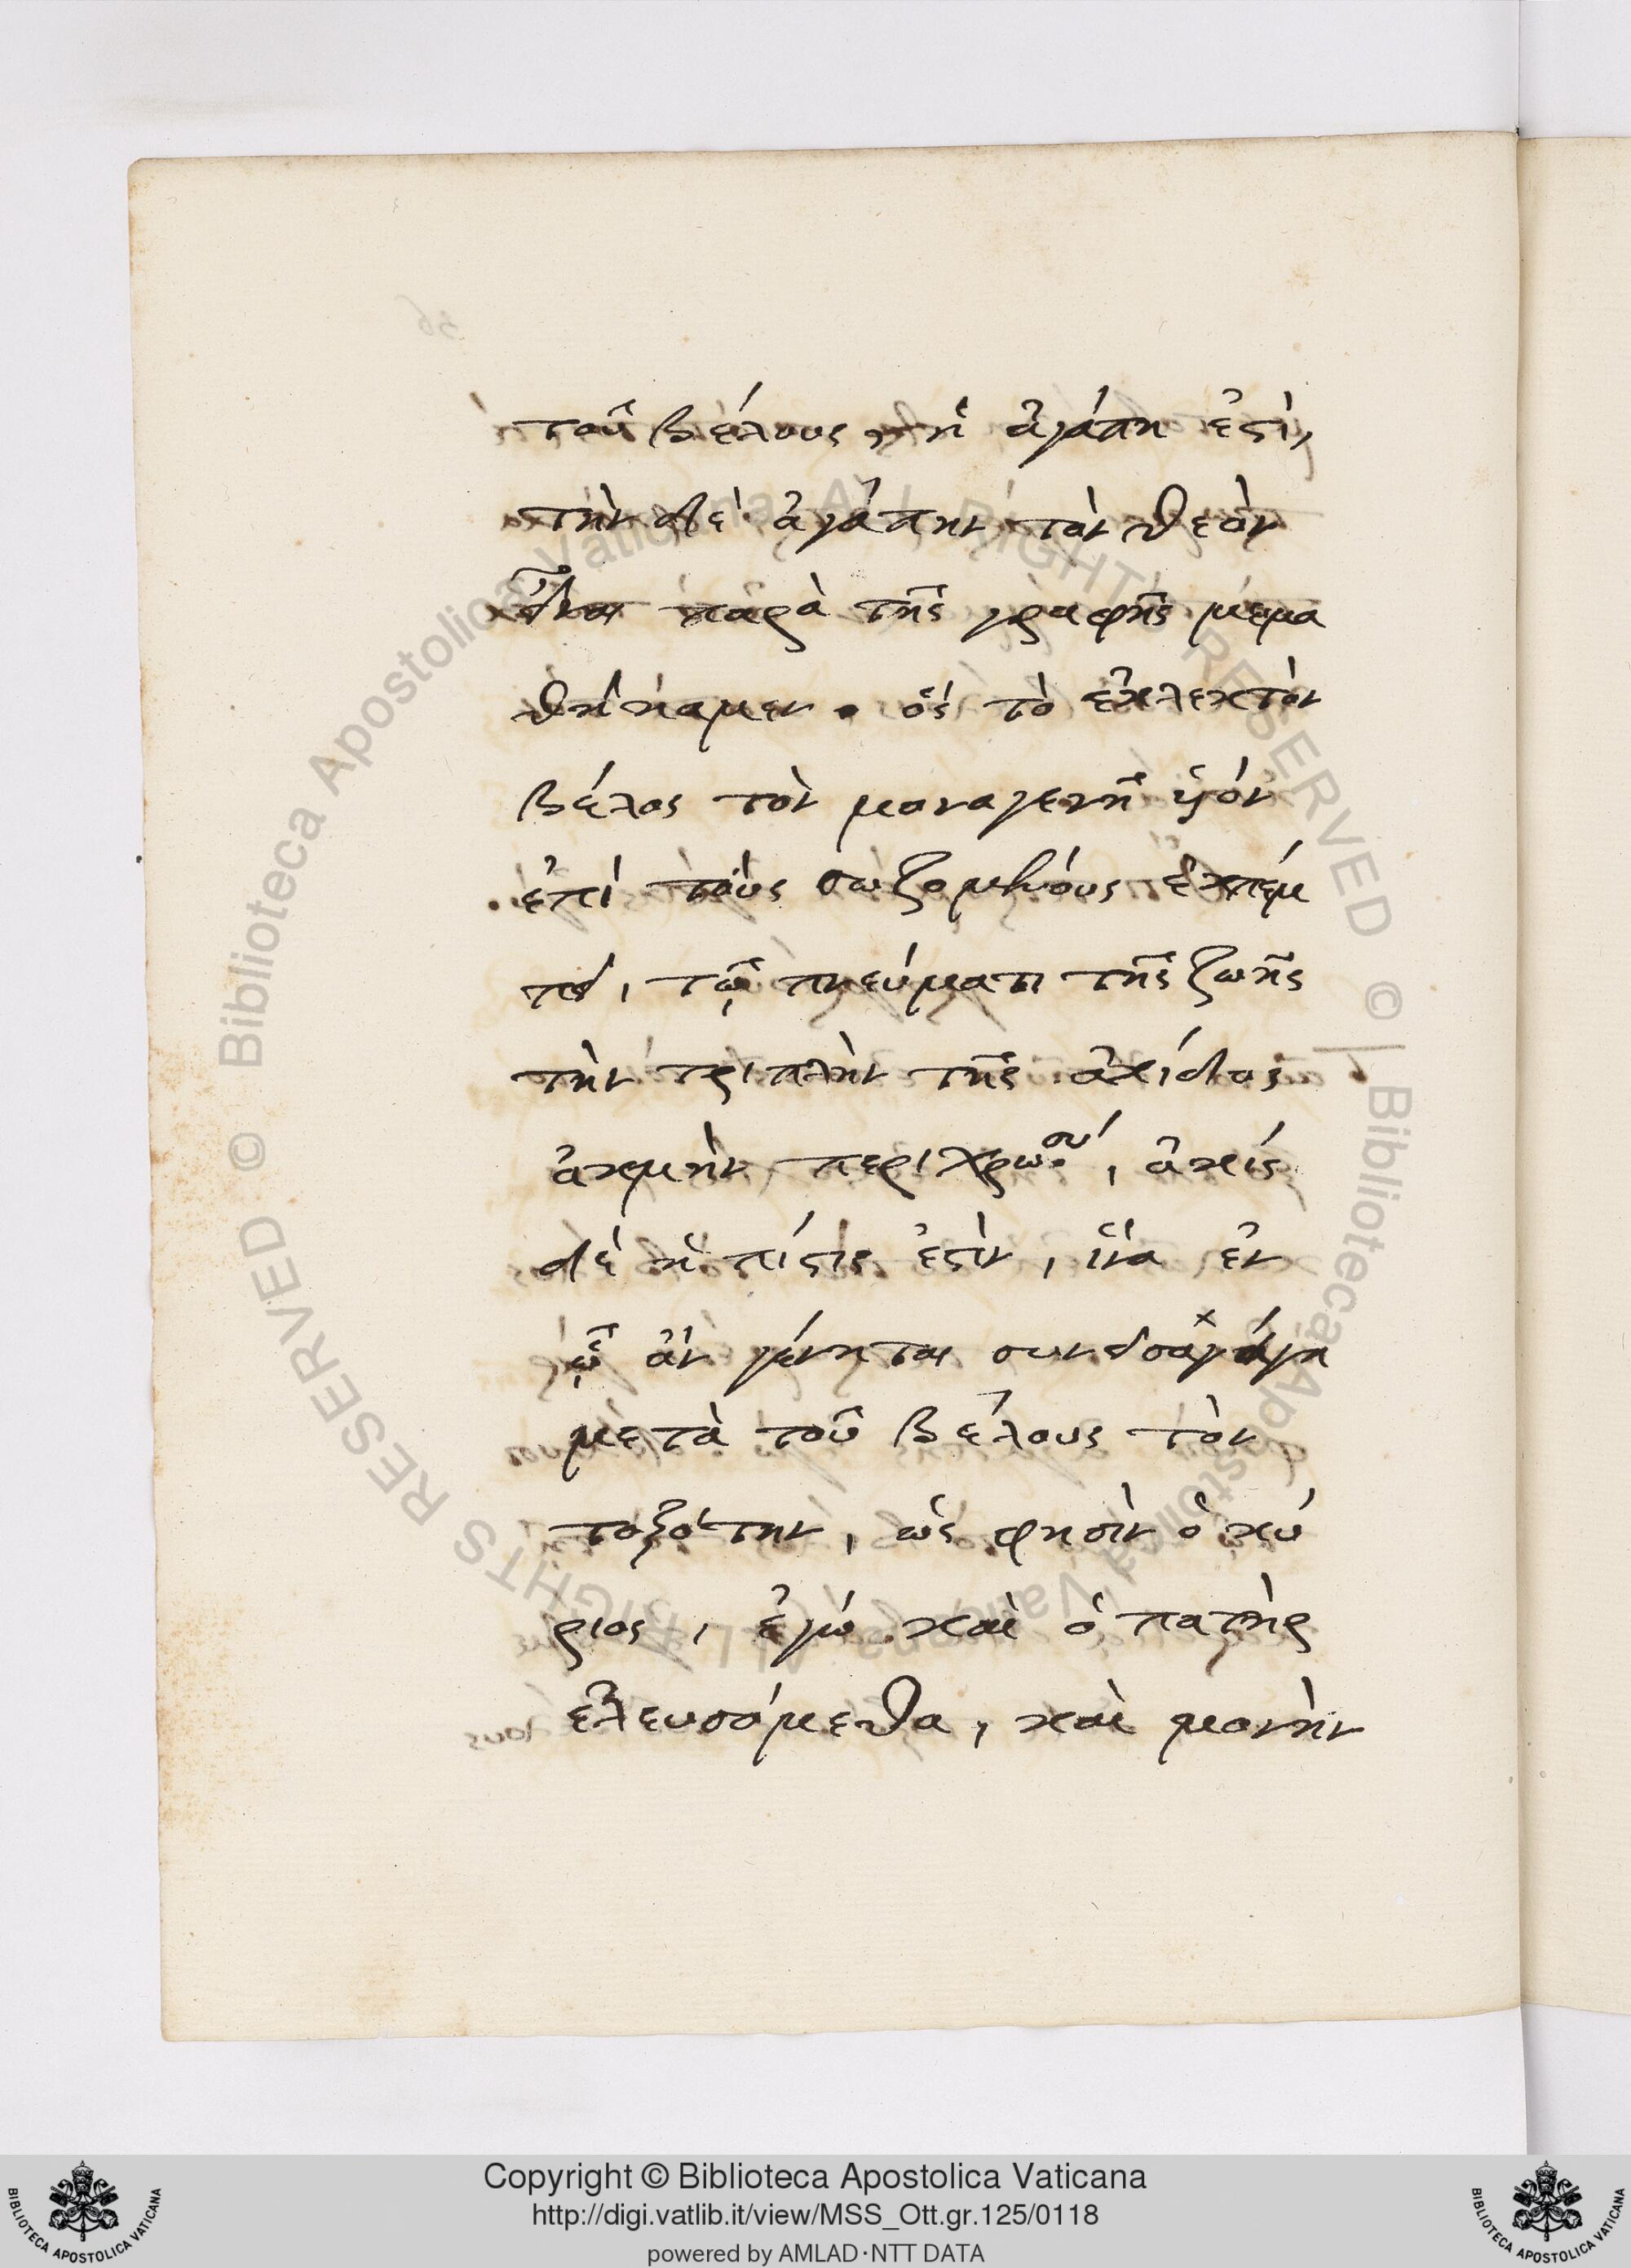 τοῦ βέλους, ἡ ἀγάπη ἐστὶ,
τὴν δὲ ἀγάπην τὸν θεὸν
εἶναι παρὰ τῆς γραφῆς μεμα
θήκαμεν. ὃς τὸ ἐκλεκτὸν
βέλος τὸν μονογενῆ υἱὸν
ἐπὶ τοὺς σωζομένους ἐκπέμ
πει, τῷ πνεύματι τῆς ζωῆς
τὴν τριπλὴν τῆς ἀκίδος
ἀκμὴν περιχρώσας, ἀκίς
δὲ ἡ πίστις ἐστὶν, ἵνα ἐν
ᾧ ἂν γένηται συνεισαγάγη
μετὰ τοῦ βέλους τὸν
τοξότην, ὥς φησιν ὁ κύ
ριος, ἐγὼ καὶ ὁ πατὴρ
ἐλευσόμεθα, καὶ μονὴν
Biblioteca Apostolica Vaticana ALL RIGHTS RESERVED ©
Biblioteca Apostolica Vaticana ALL RIGHTS RESERVED ©
Copyright © Biblioteca Apostolica Vaticana
http://digi.vatlib.it/view/MSS_Ott.gr.125/0118
powered by AMLAD·NTT DATA
BIBLIOTECA APOSTOLICA VATICANA
BIBLIOTECA APOSTOLICA VATICANA